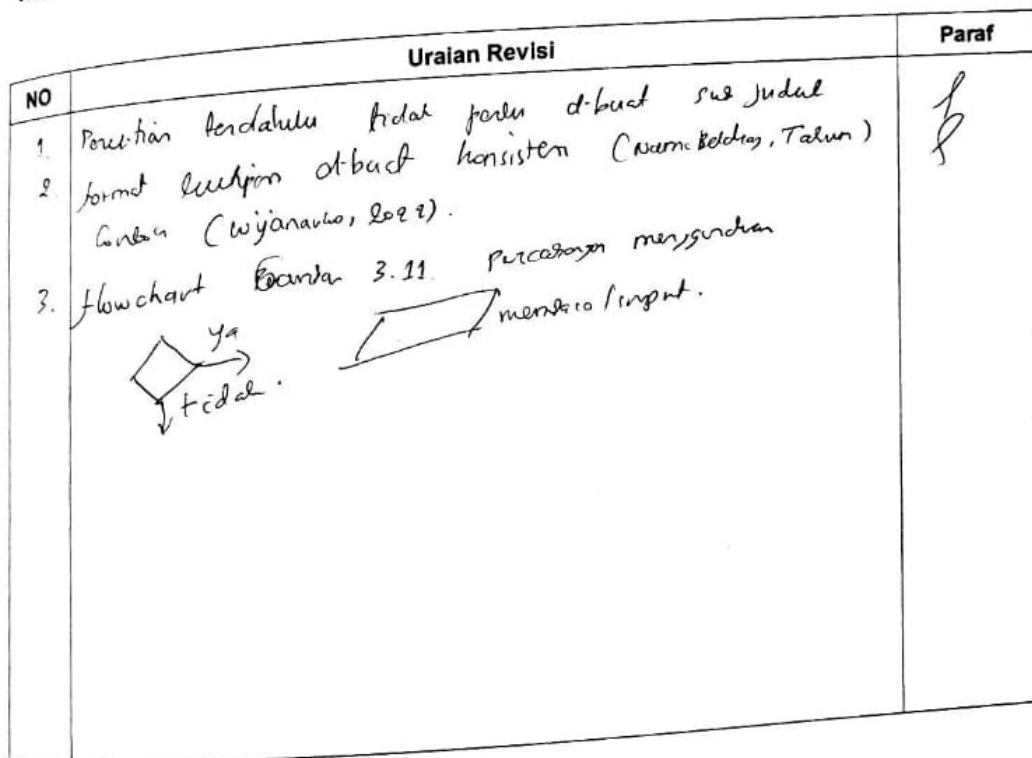 NO Uraian Revisi Paraf
1. Penelitian terdahulu tidak perlu dibuat sub judul
2. format kutipan dibuat konsisten (Nama Belakang, Tahun)
Contoh (Wijanarko, 2022).
3. flowchart Gambar 3.11. Percabangan menggunakan
ya
membaca/input.
tidak.